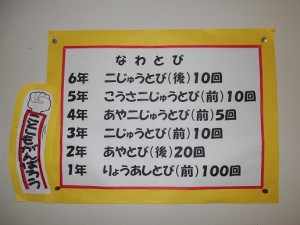 なわとび
6年 二じゅうとび(後)10回
5年 こうさ二じゅうとび(前)10回
4年 あや二じゅうとび(前)5回
3年 二じゅうとび(前)10回
2年 あやとび(後)20回
1年 りょうあしとび(前)100回